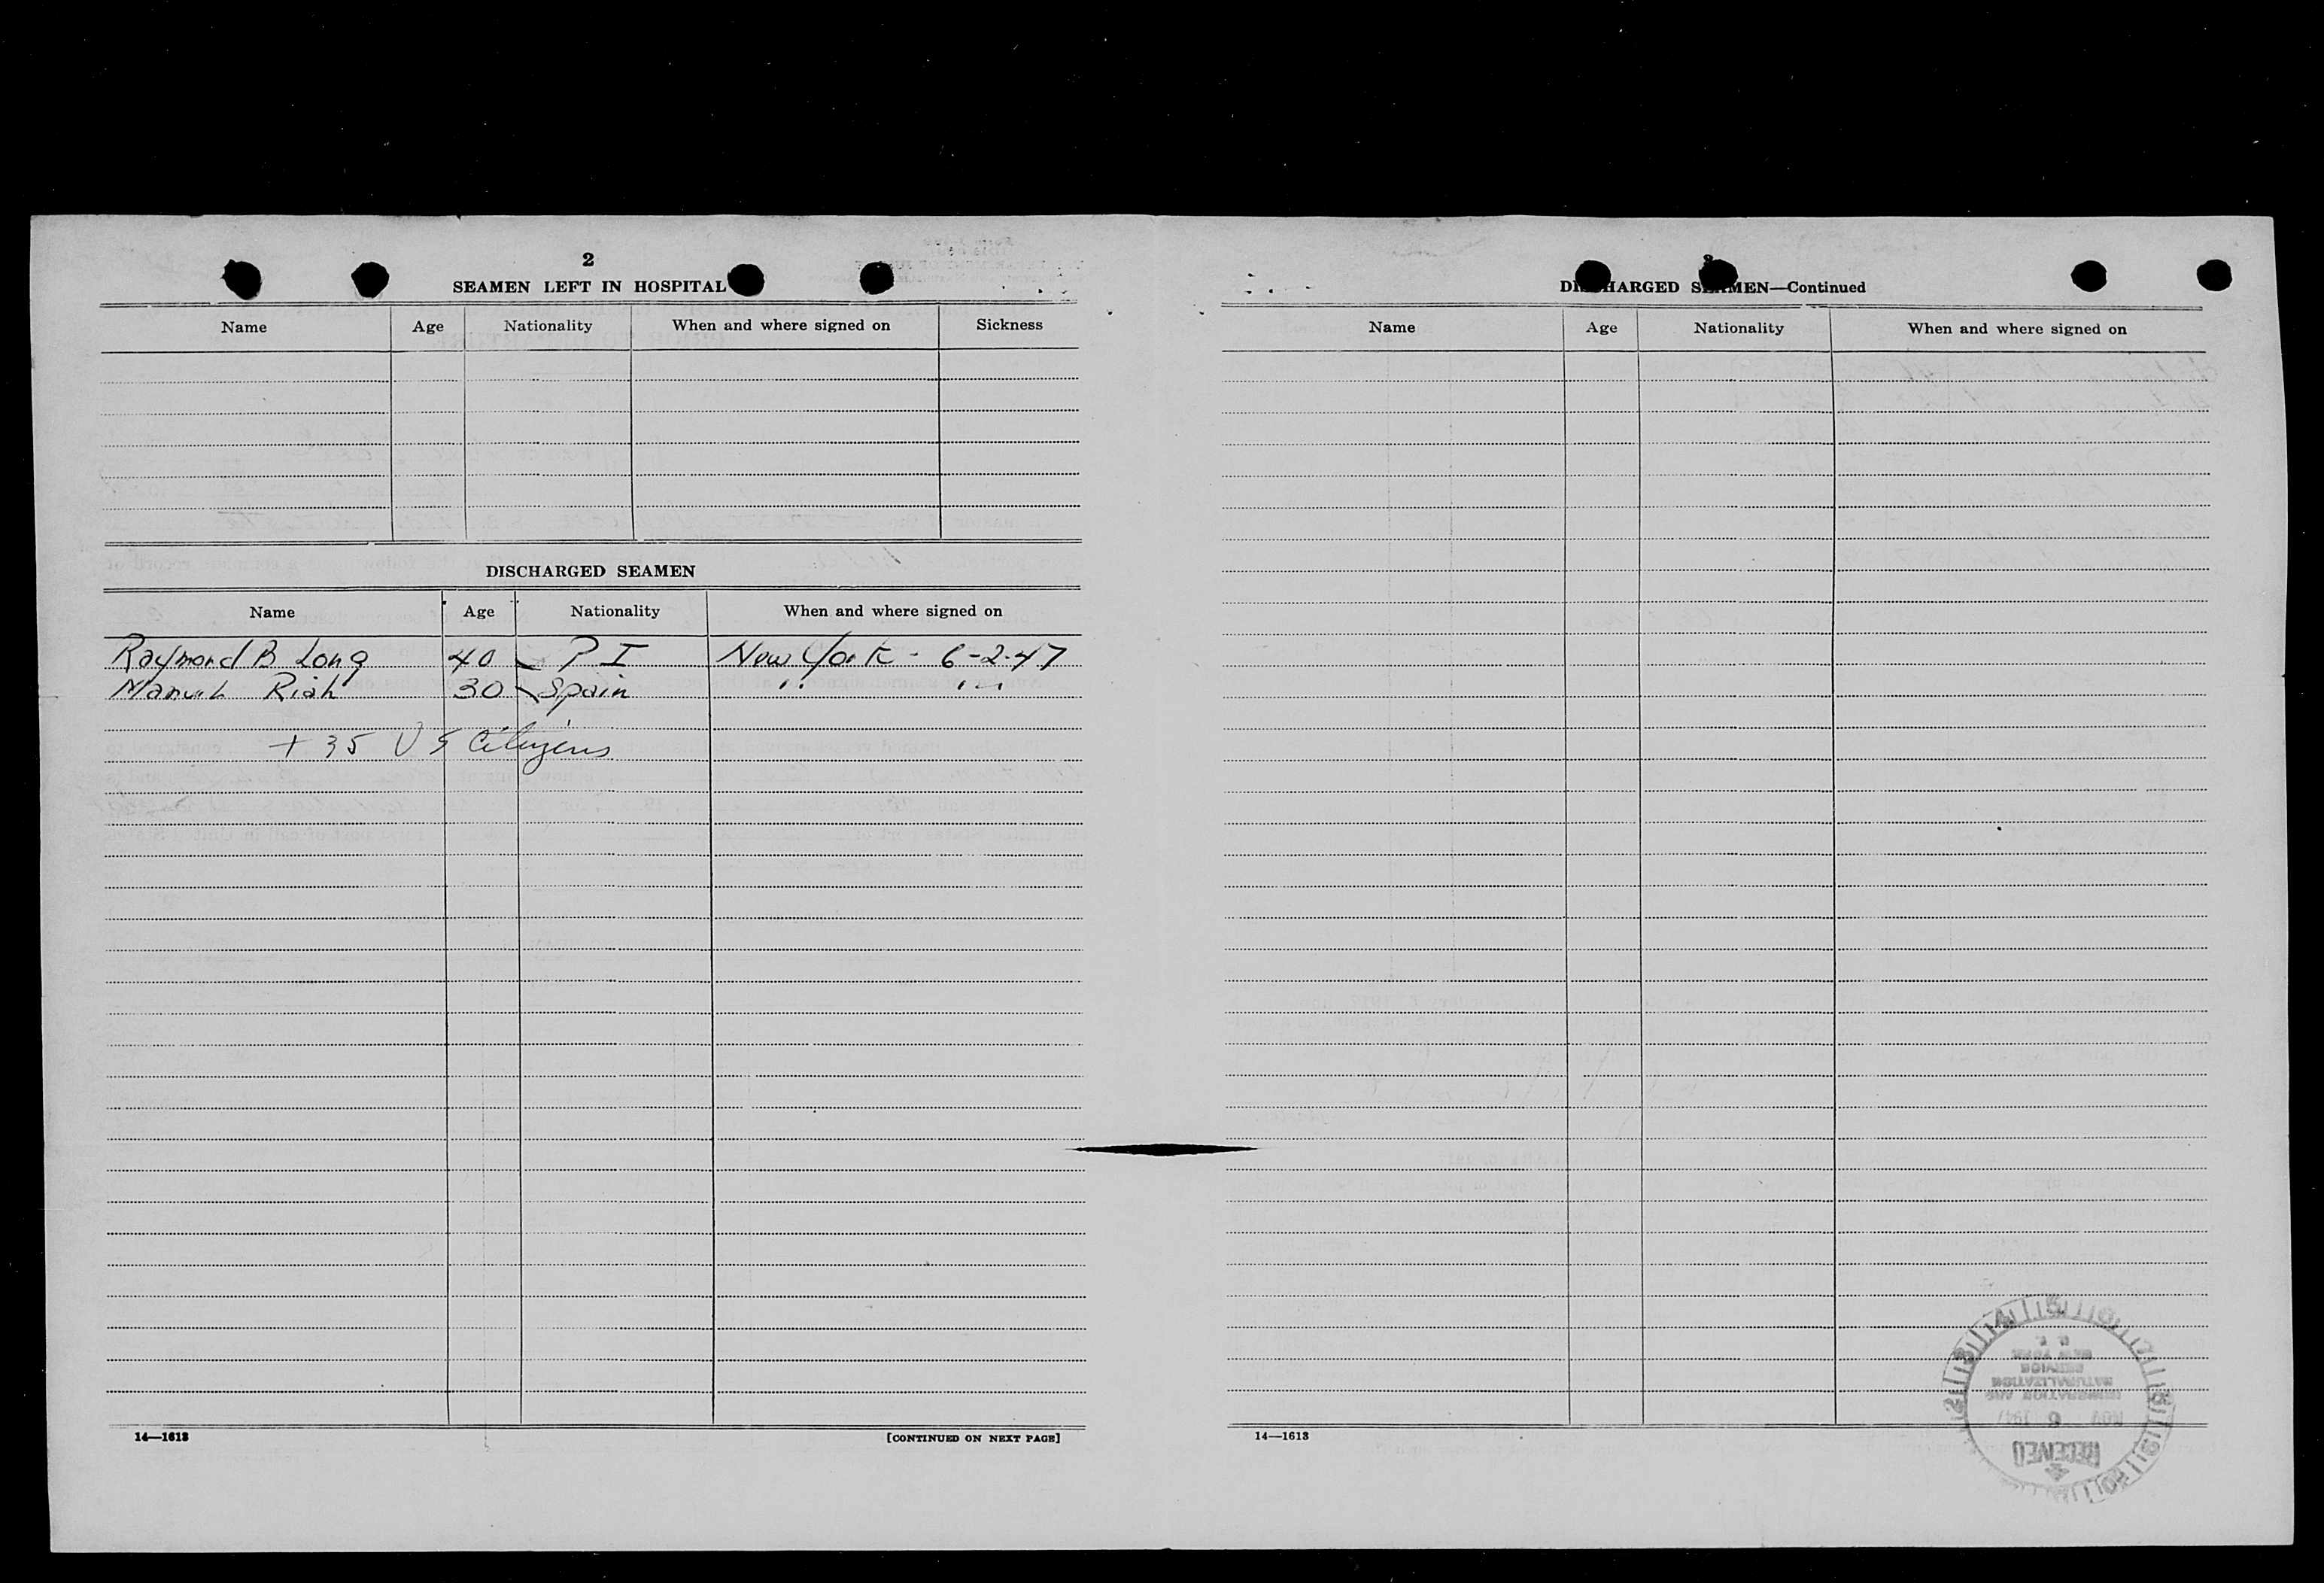 2
SEAMEN LEFT IN HOSPITAL
Name Age Nationality When and where signed on Sickness
DISCHARGED SEAMEN
Name Age Nationality When and where signed on
Raymond B Long 40 P I New York - 6-2-47
Manuel Rial 30 Spain " "
+ 35 U S Citizens
14—1613 [CONTINUED ON NEXT PAGE]
3
DISCHARGED SEAMEN—Continued
Name Age Nationality When and where signed on
14—1613
RECEIVED
NOV 6 1947
IMMIGRATION AND
NATURALIZATION
SERVICE
NEW YORK